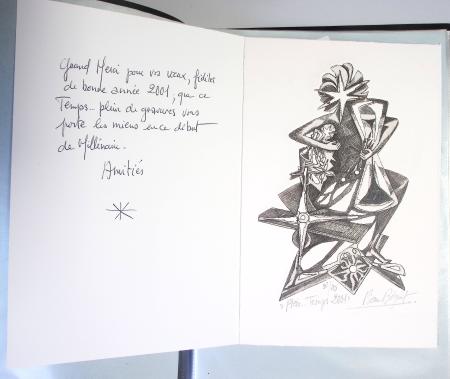 Grand Merci pour vos vœux, fidèles
de bonne année 2001, que ce
Temps.. plein de gravures vous
porte les miens en ce début
de Millénaire.
Amitiés
Temps 2001